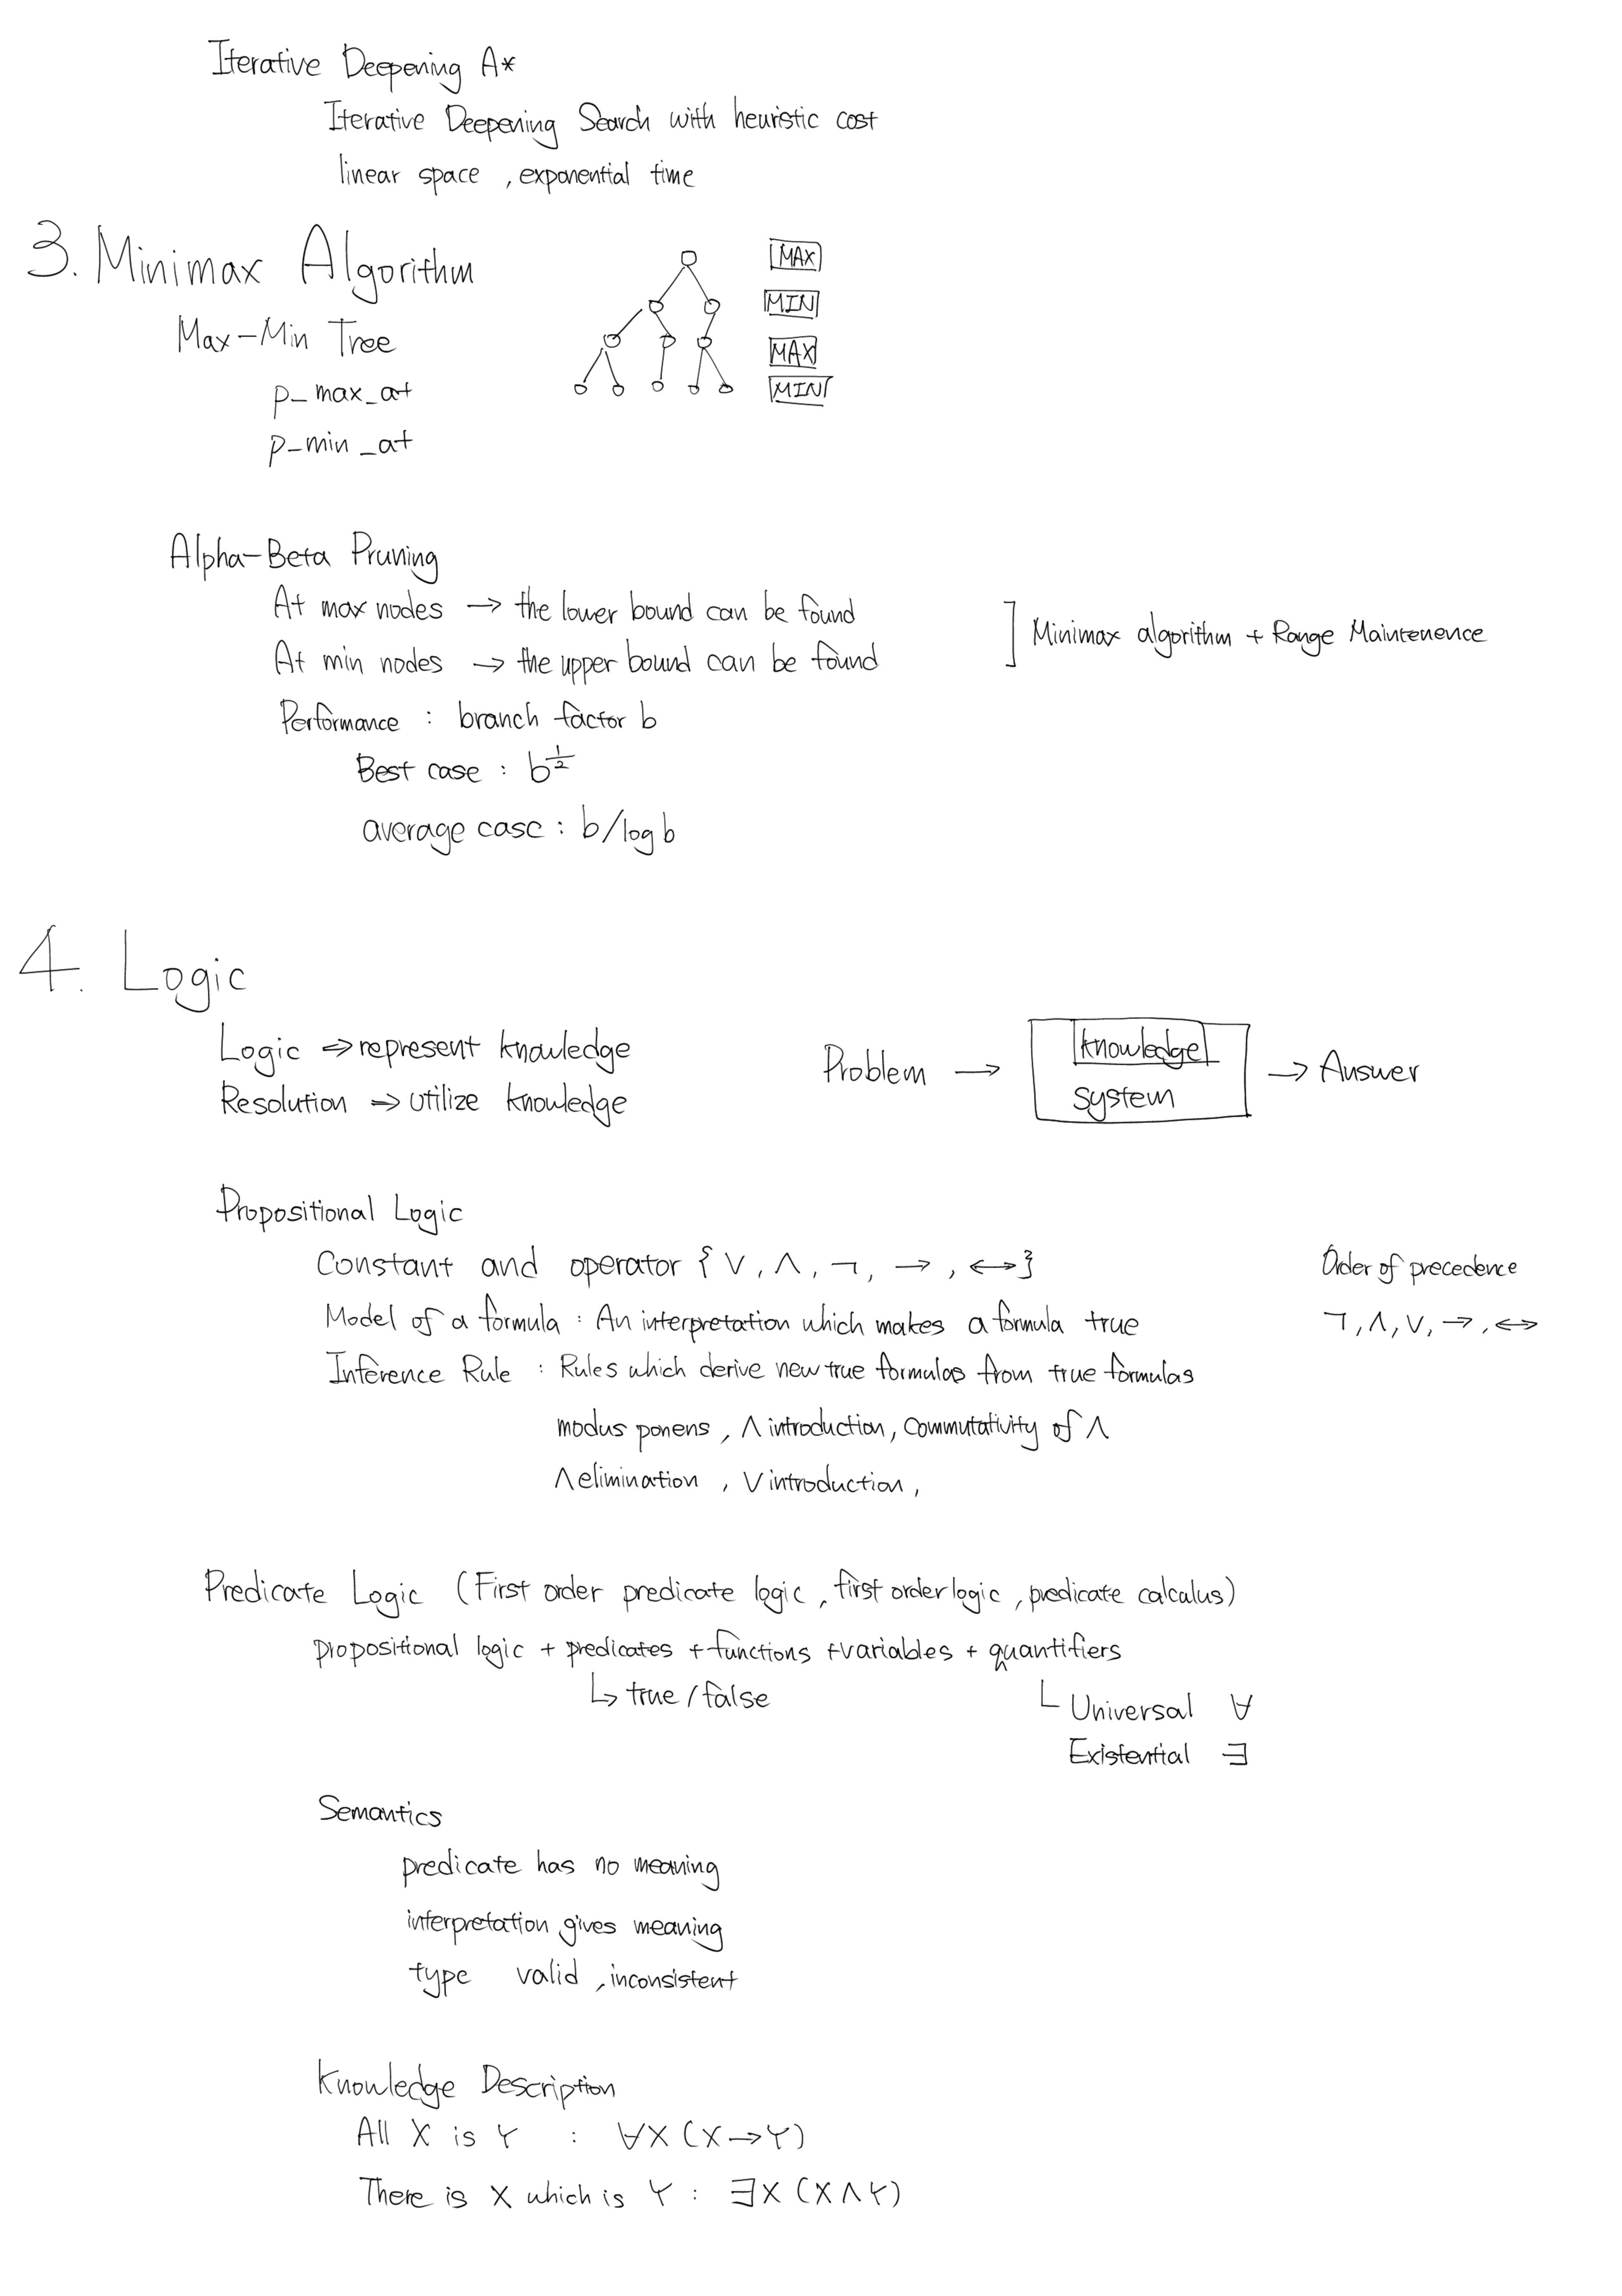 Iterative Deepening A*
Iterative Deepening Search with heuristic cost
linear space , exponential time
3. Minimax Algorithm
MAX
MIN
MAX
MIN
Max-Min Tree
p_max_at
p_min_at
Alpha-Beta Pruning
At max nodes → the lower bound can be found
At min nodes → the upper bound can be found
] Minimax algorithm + Range Maintenence
Performance : branch factor b
Best case : b^½
average case : b/log b
4. Logic
Logic ⇒ represent knowledge
Resolution ⇒ utilize knowledge
Problem → knowledge system → Answer
Propositional Logic
Constant and operator { ∨, ∧, ¬, →, ↔ }
Order of precedence
¬, ∧, ∨, →, ↔
Model of a formula : An interpretation which makes a formula true
Inference Rule : Rules which derive new true formulas from true formulas
modus ponens , ∧ introduction, Commutativity of ∧
∧ elimination , ∨ introduction ,
Predicate Logic (First order predicate logic , first order logic , predicate calculus)
propositional logic + predicates + functions + variables + quantifiers
↳ true / false
└ Universal ∀
Existential ∃
Semantics
predicate has no meaning
interpretation gives meaning
type valid , inconsistent
Knowledge Description
All X is Y : ∀X (X → Y)
There is X which is Y : ∃X (X ∧ Y)